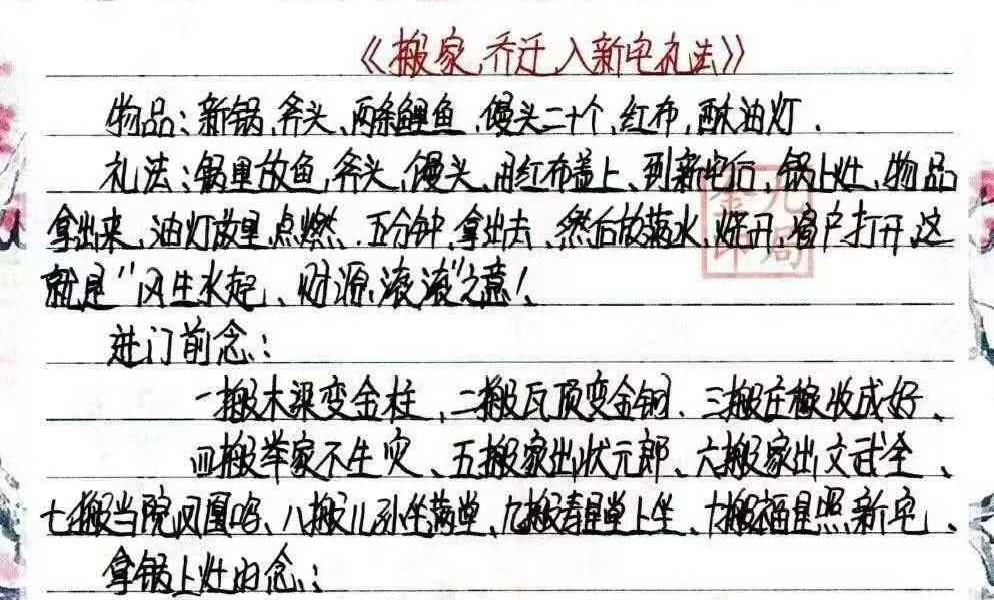 《搬家,乔迁,入新宅礼法》
物品:新锅,斧头、两条鲤鱼、馒头二十个,红布,酥油灯.
礼法:锅里放鱼,斧头,馒头、用红布盖上、到新宅后,锅上灶、物品
拿出来、油灯放里点燃、五分钟,拿出去、然后放满水,烧开,窗户打开,这
就是“风生水起、财源滚滚”之意!
进门前念:
一搬木梁变金柱,二搬瓦顶变金钢、三搬庄稼收成好、
四搬举家不生灾、五搬家出状元郎、六搬家出文武全、
七搬当院凤凰鸣、八搬儿孙坐满堂、九搬寿星堂上坐、十搬福星照新宅、
拿锅上灶时念:
九
奎
局
印